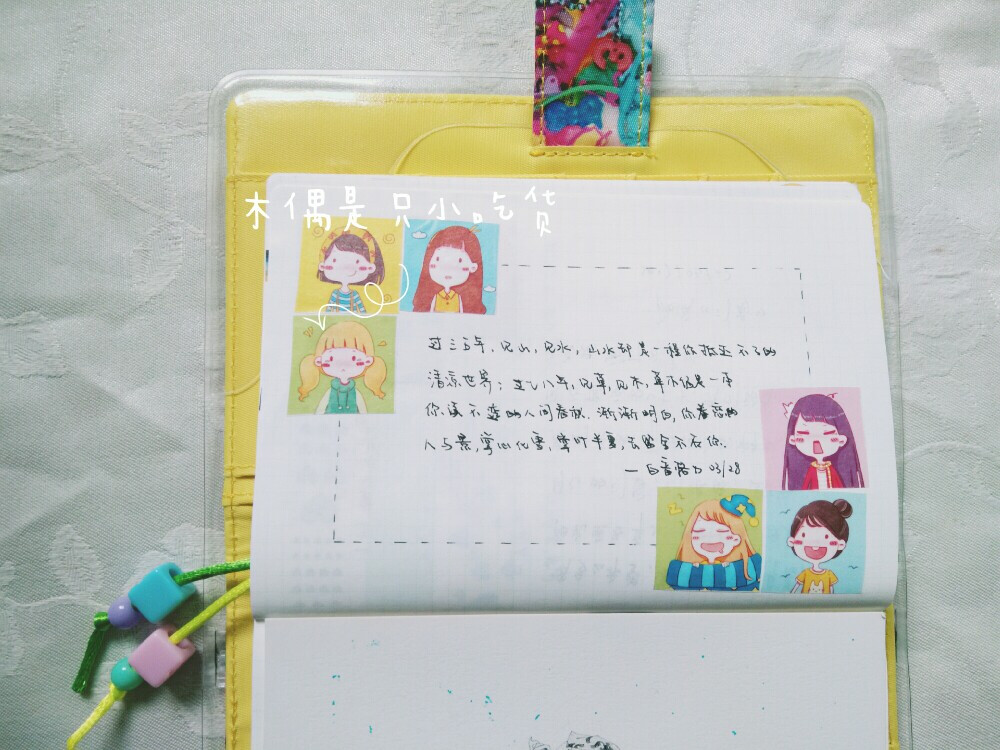 木偶是只小吃货
过三五年,见山,见水,山水都是一程你抵达不了的
清凉世界;过七八年,见草,见木,草木俱是一卷
你读不透的人间. 渐渐明白,你看过的
人与景,穿心化雪,
—白音格力 03/28